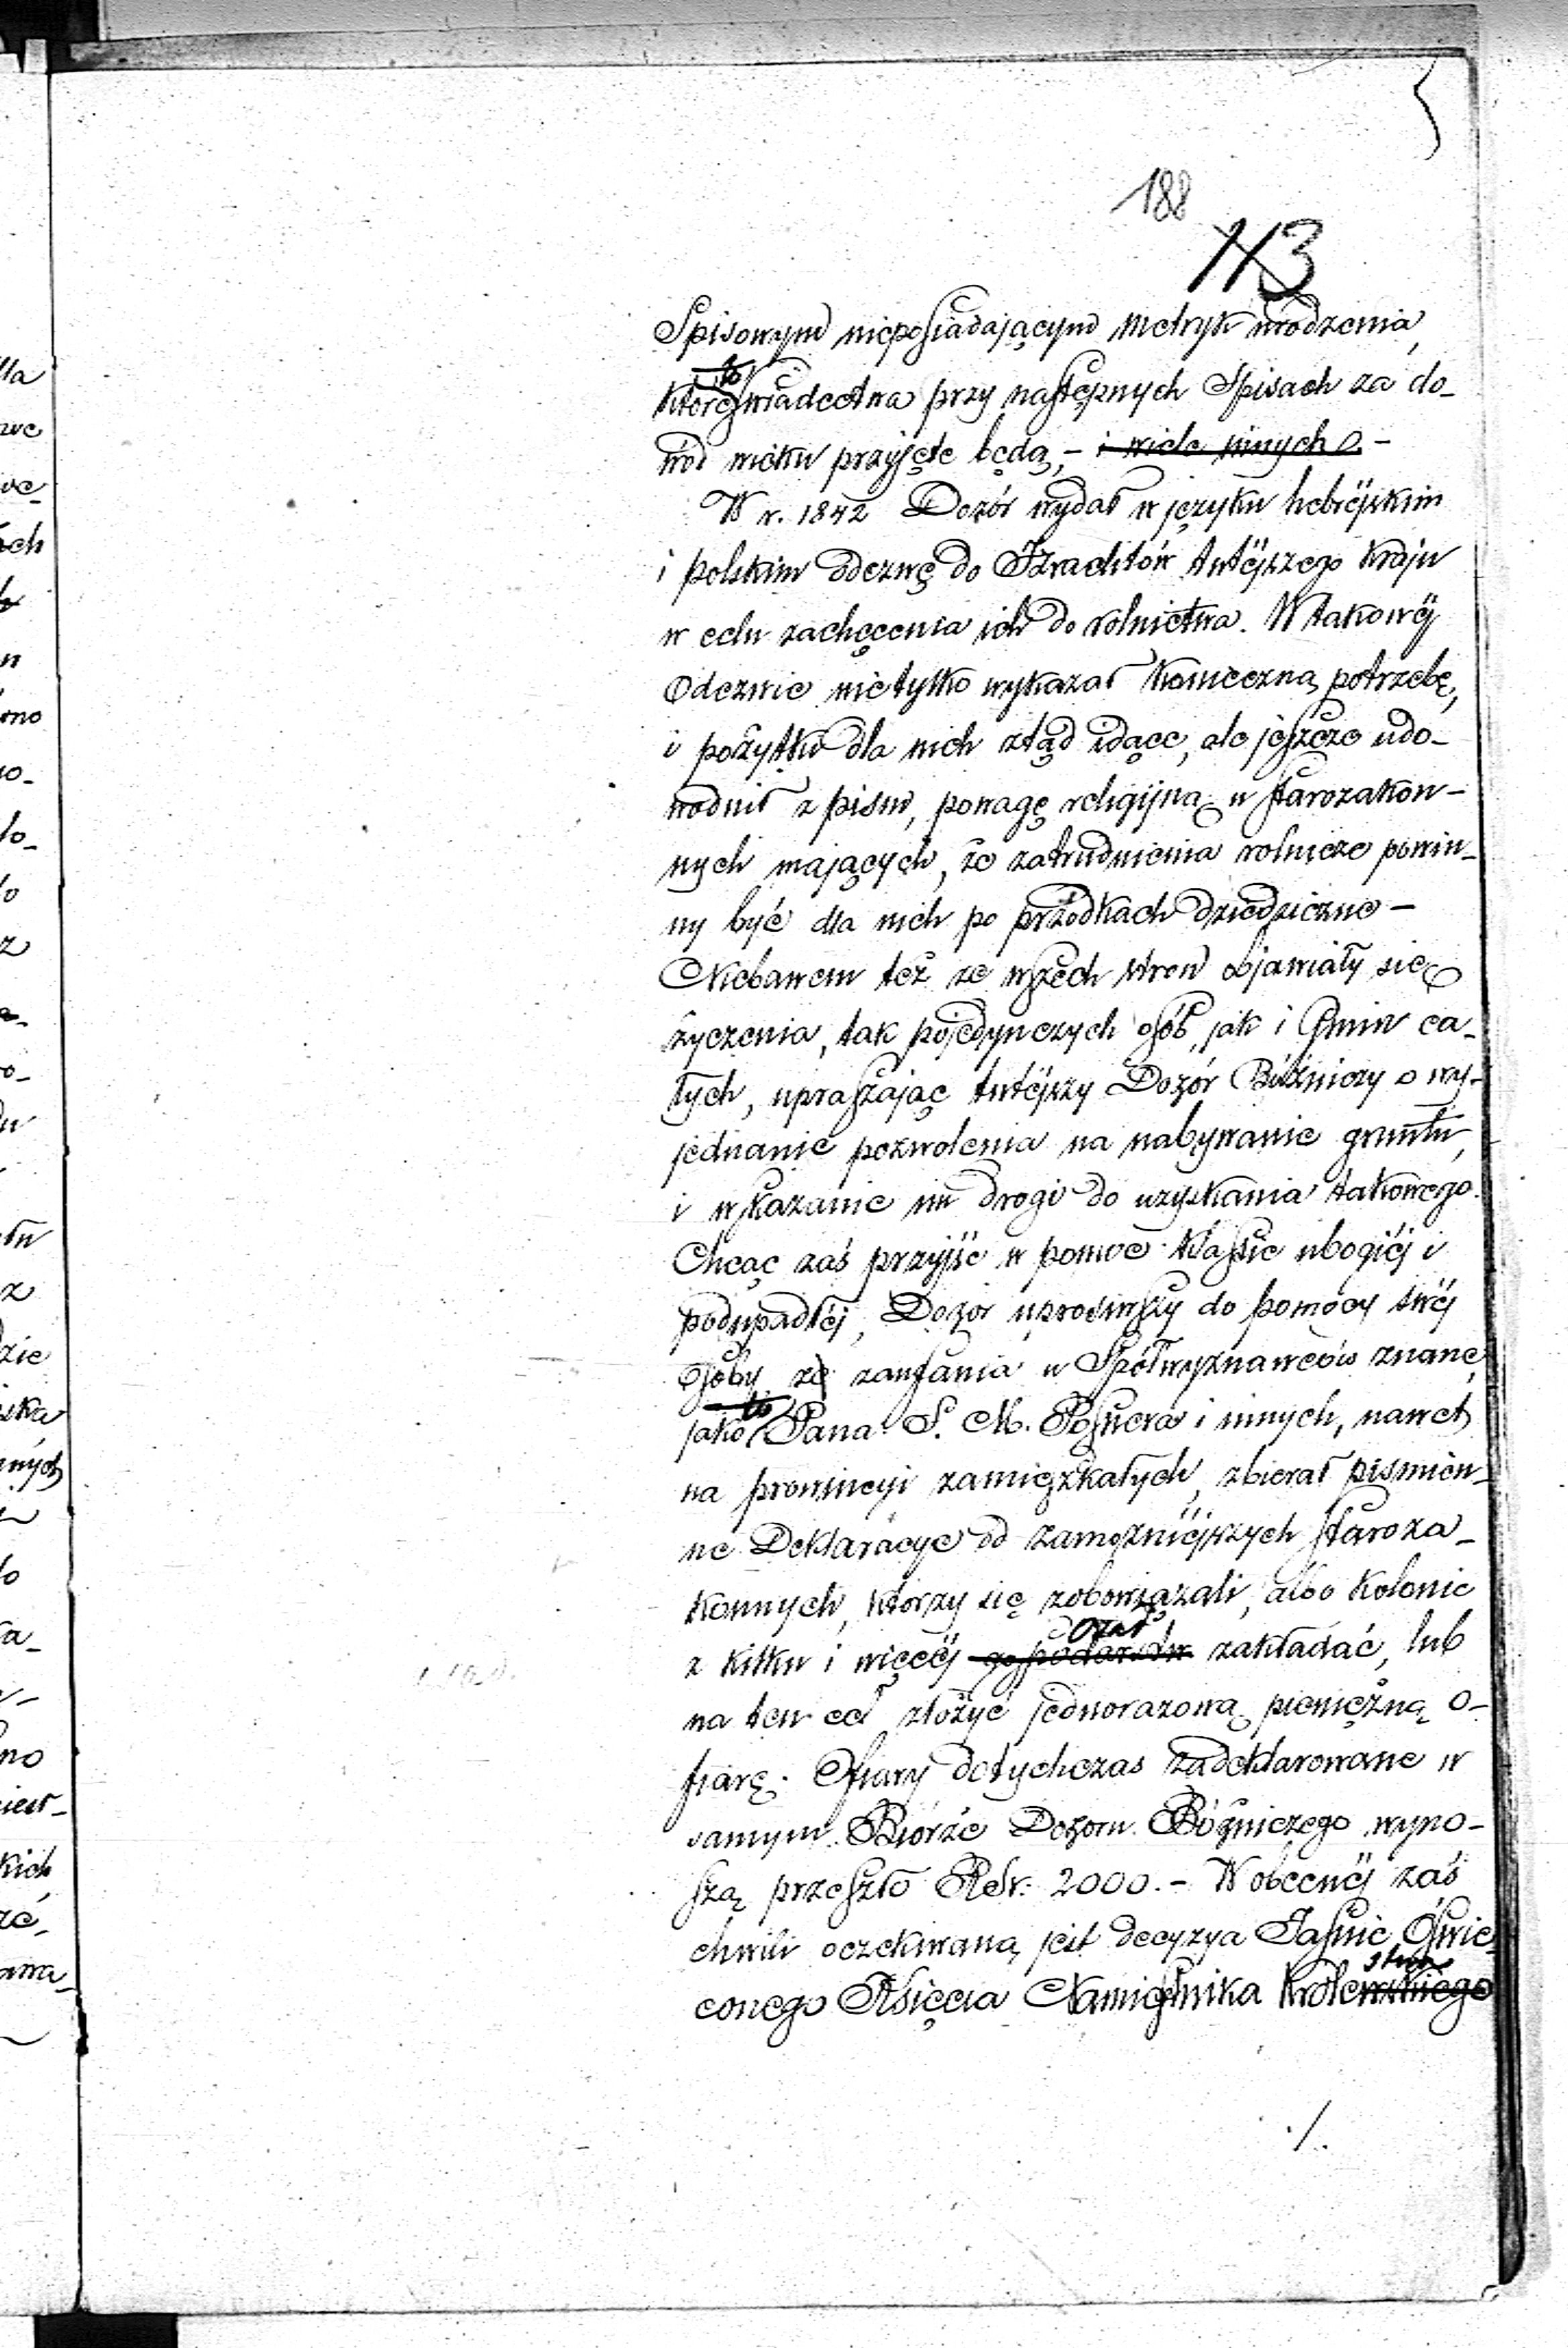 188
113
Spisowym nieposiadającym metryk urodzenia,
które to świadectwa przy następnych Spisach za do-
wód wieku przyjęte będą,- i wiele innych. -
W r. 1842 Dozór wydał w języku hebrejskim
i polskim odezwę do Izraelitów tutéjszego kraju
w celu zachęcenia ich do rolnictwa. W takowéj
Odezwie nietylko wykazał konieczną potrzebę,
i pożytki dla nich ztąd idące, ale jeszcze udo-
wodnił z pism, powagę religijną u starozakon-
nych mających, że zatrudnienia rolnicze powin-
ny być dla nich po przodkach dziedziczne -
Niebawem też ze wszech stron objawiały się
życzenia, tak pojedynczych osób, jak i Gmin ca-
łych, upraszając tutéjszy Dozór Bóżniczy o wy-
jednanie pozwolenia na nabywanie gruntu,
i wskazanie im drogi do uzyskania takowego.
Chcąc zaś przyjść w pomoc klassie ubogiéj i
podupadłéj, Dozór uprosiwszy do pomocy swéj
Osoby ze zaufania u Spółwyznawców znane,
jako to Pana S. M. Posnera i innych, nawet
na prowincyi zamieszkałych, zbierał piśmien-
ne Deklaracye od zamożniéjszych staroza-
konnych, którzy się zobowiązali, albo Kolonie
z kilku i więcéj gospodarstw osad zakładać, lub
na ten cel złożyć jednorazową pieniężną o-
fiarę. Ofiary dotychczas zadeklarowane w
samym Biórze Dozoru Bóżniczego wyno-
szą przeszło RSr. 2000.- W obecnéj zaś
chwili oczekiwaną jest decyzya Jaśnie Oświe-
conego Księcia Namiestnika Królewskiego stwa
./.